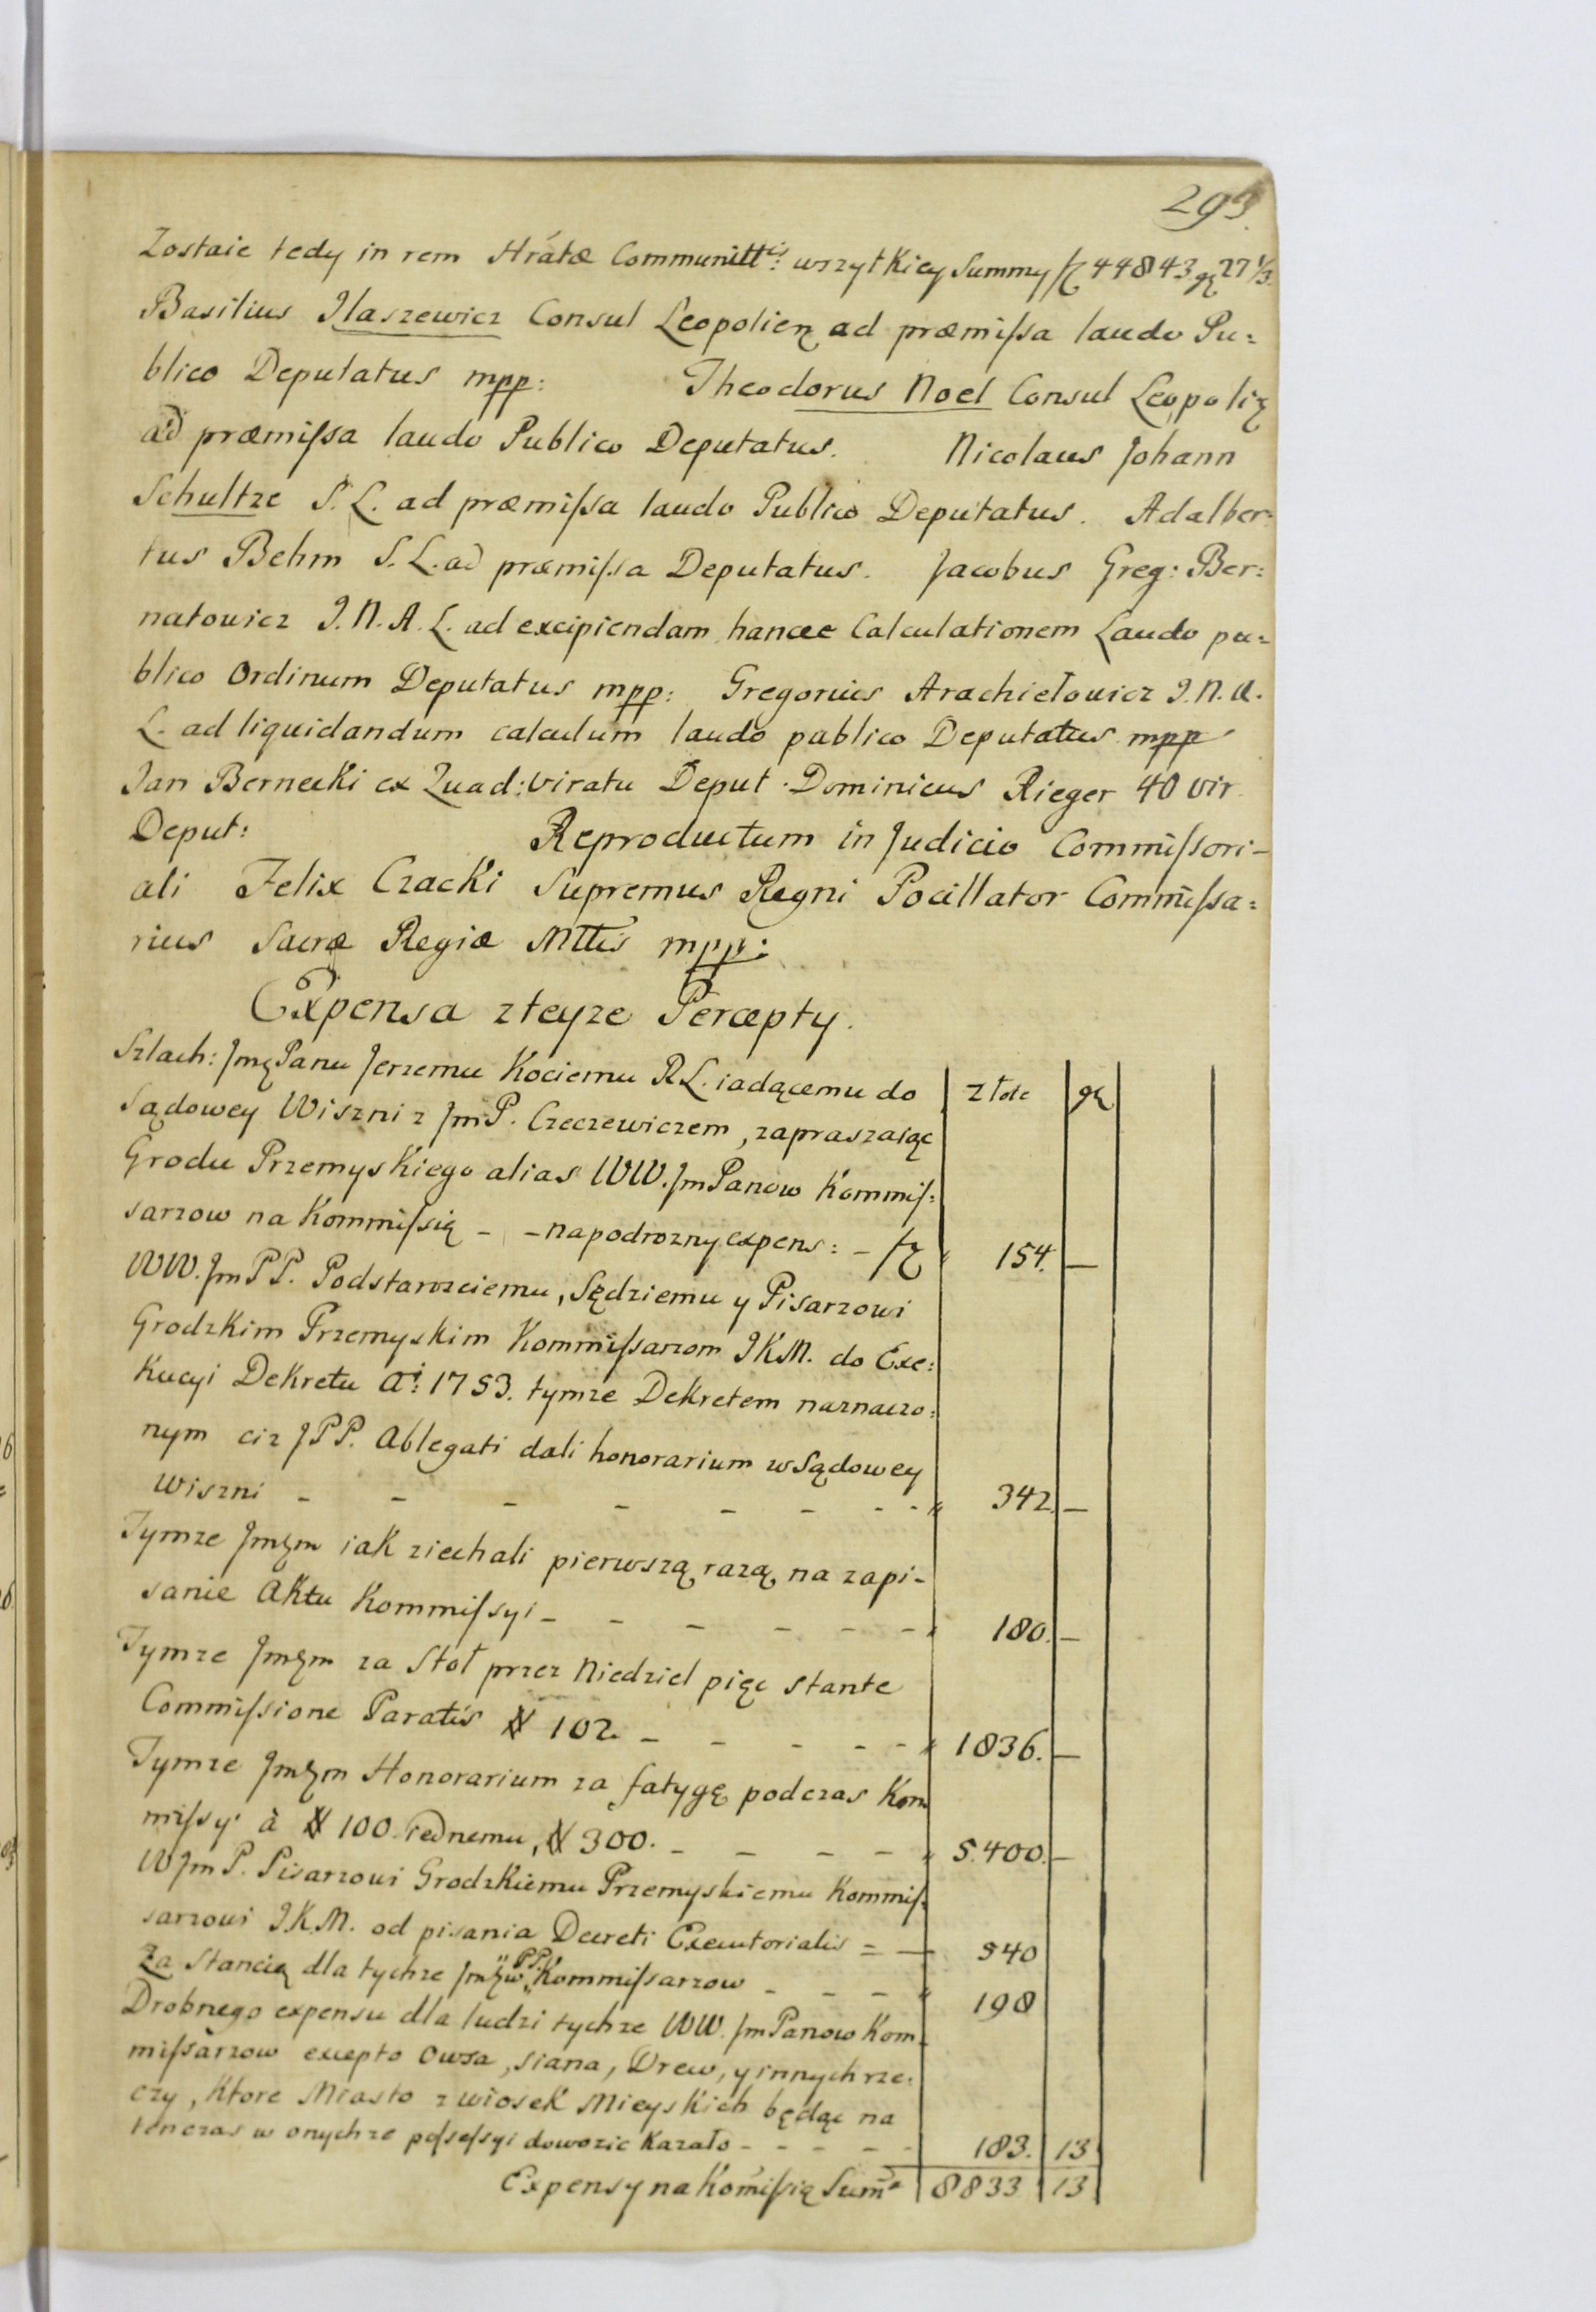 293.
Zostaie tedy in rem Hrátæ Communittis: wszytkiey Summy fz 44843 gę 27 1/3.
Basilius Ilaszewicz Consul Leopolien ad præmiſsa laudo Pu=
blico Deputatus mpp: Theodorus Noel Consul Leopoli
ad præmiſsa laudo Publico Deputatus. Nicolaus Johann
Schultze S. L. ad præmiſsa laudo Publico Deputatus. Adalber=
tus Behm S. L. ad præmiſsa Deputatus. Jacobus Greg: Ber=
natowicz J. N. A. L. ad excipiendam hancce Calculationem Laudo pu=
blico Ordinum Deputatus mpp: Gregorius Arachiełowicz J. N. A.
L. ad liquidandum calculum laudo publico Deputatus mpp
Jan Bernecki ex Quad: viratu Deput. Dominicus Rieger 40 vir.
Deput: Reproductum in Judicio Commiſsori-
ali Felix Czacki Supremus Regni Pocillator Commiſsa=
rius Sacræ Regiæ Mttis mpp:
Expensa zteyze Percepty.
Szlach: Jmę Panu Jerzemu Kociemu R L. iadącemu do | złote | gę
Sądowey Wiszni z Jm P. Czeczewiczem, zapraszaiąc
Grodu Przemyskiego alias WW. Jm Panow Kommiſ=
sarzow na Kommiſsią - - na podrozny expens: - fz 154. —
WW. Jm PP. Podstarosciemu, Sędziemu y Pisarzowi
Grodzkim Przemyskim Kommiſsarzom JKM. do Exe=
kucyi Dekretu Ai: 1753. tymze Dekretem naznaczo=
nym ciz JPP. Ablegati dali honorarium w Sądowey
Wiszni - - - - - - - - 342. —
Tymze Jmęm iak ziechali pierwszą razą na zapi-
sanie Aktu Kommiſsyi - - - - - - 180. —
Tymze Jmęm za Stoł przez Niedziel pięc stante
Commiſsione Paratis # 102. - - - - - 1836. —
Tymze Jmęm Honorarium za fatygę podczas Kom
miſsyi à # 100 iednemu, # 300. - - - - 5.400. —
W Jm P. Pisarzowi Grodzkiemu Przemyskiemu Kommiſ=
sarzowi JKM. od pisania Decreti Executorialis = — 540
Za Stancią dla tychze Jmęw PP. Kommiſsarzow - - - - 198
Drobnego expensu dla ludzi tychze WW. Jm Panow Kom
miſsarzow excepto Owsa, siana, Drew, y innych rze=
czy, ktore Miasto z wiosek Mieyskich będąc na
tenczas w onychze poſseſsyi dowozic kazało - - - - - 183. 13
Expensy na Kom̃iſsią Sum̃a 8833 13